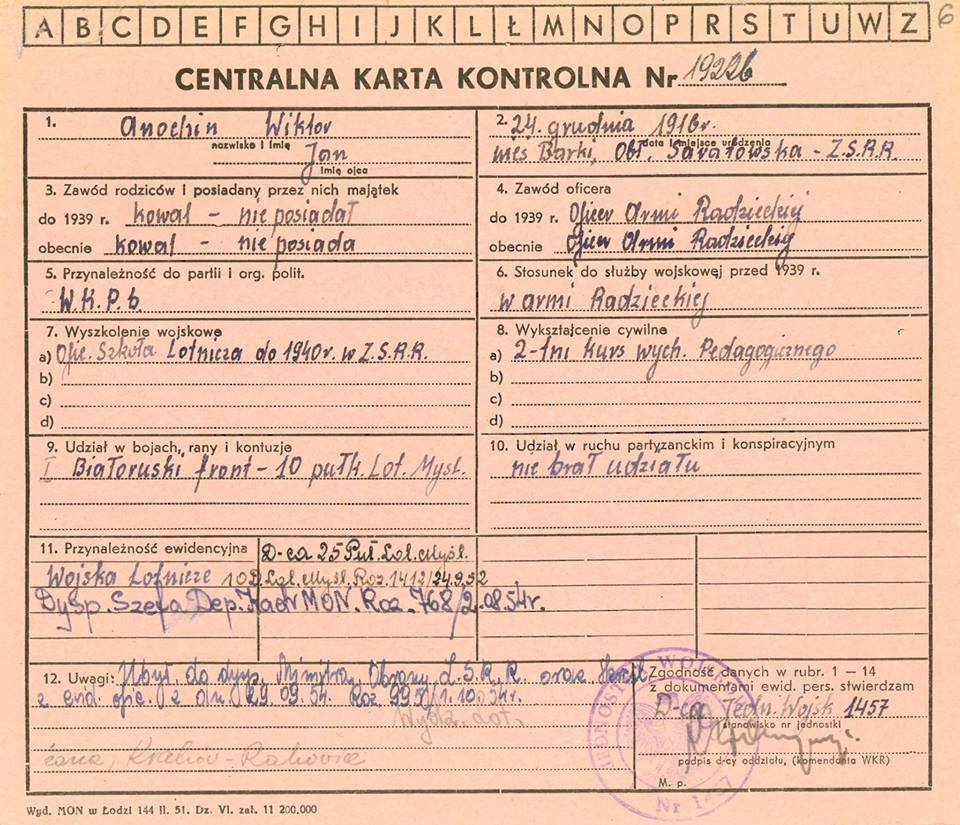 A B C D E F G H I J K L Ł M N O P R S T U W Z 6
CENTRALNA KARTA KONTROLNA Nr 19226
1. Anochin Wiktor
nazwisko i imię
Jan
imię ojca
2. 24. grudnia 1916r.
data i miejsce urodzenia
mies Barki, Obł. Saratowska - Z.S.R.R.
3. Zawód rodziców i posiadany przez nich majątek
do 1939 r. kowal - nie posiadał
obecnie kowal - nie posiada
4. Zawód oficera
do 1939 r. Oficer Armi Radzieckiej
obecnie Oficer Armi Radzieckiej
5. Przynależność do partii i org. polit.
W.K.P.b.
6. Stosunek do służby wojskowej przed 1939 r.
w armi Radzieckiej
7. Wyszkolenie wojskowe
a) Ofic. Szkoła Lotnicza do 1940r. w Z.S.R.R.
b)
c)
d)
8. Wykształcenie cywilne
a) 2-tni kurs wych. Pedagogicznego
b)
c)
d)
9. Udział w bojach, rany i kontuzje
I Białoruski front - 10 pułk. Lot. Myśl.
10. Udział w ruchu partyzanckim i konspiracyjnym
nie brał udziału
11. Przynależność ewidencyjna
D-ca 25 Puł. Lot. Myśl.
Wojska Lotnicze 10 D. Lot. Myśl. Roz. 1412/24.9.52
Dysp. Szefa Dep. Kadr MON. Roz. 768/2.08.54r.
12. Uwagi: Ubył do dysp. Ministra Obrony Z.S.R.R. oraz
z ewid. ofic. z dn. 29.09.54. Roz 1.10.54r.
Wydz. Lot.
Kraków-Rakowice
Zgodność danych w rubr. 1 — 14
z dokumentami ewid. pers. stwierdzam
D-ca Jedn. Wojsk 1457
stanowisko nr jednostki
podpis d-cy oddziału, (komendanta WKR)
M. p.
JEDNOSTKA WOJSKOWA Nr 1457
Wyd. MON w Łodzi 144 II. 51. Dz. VI. zał. 11 200.000